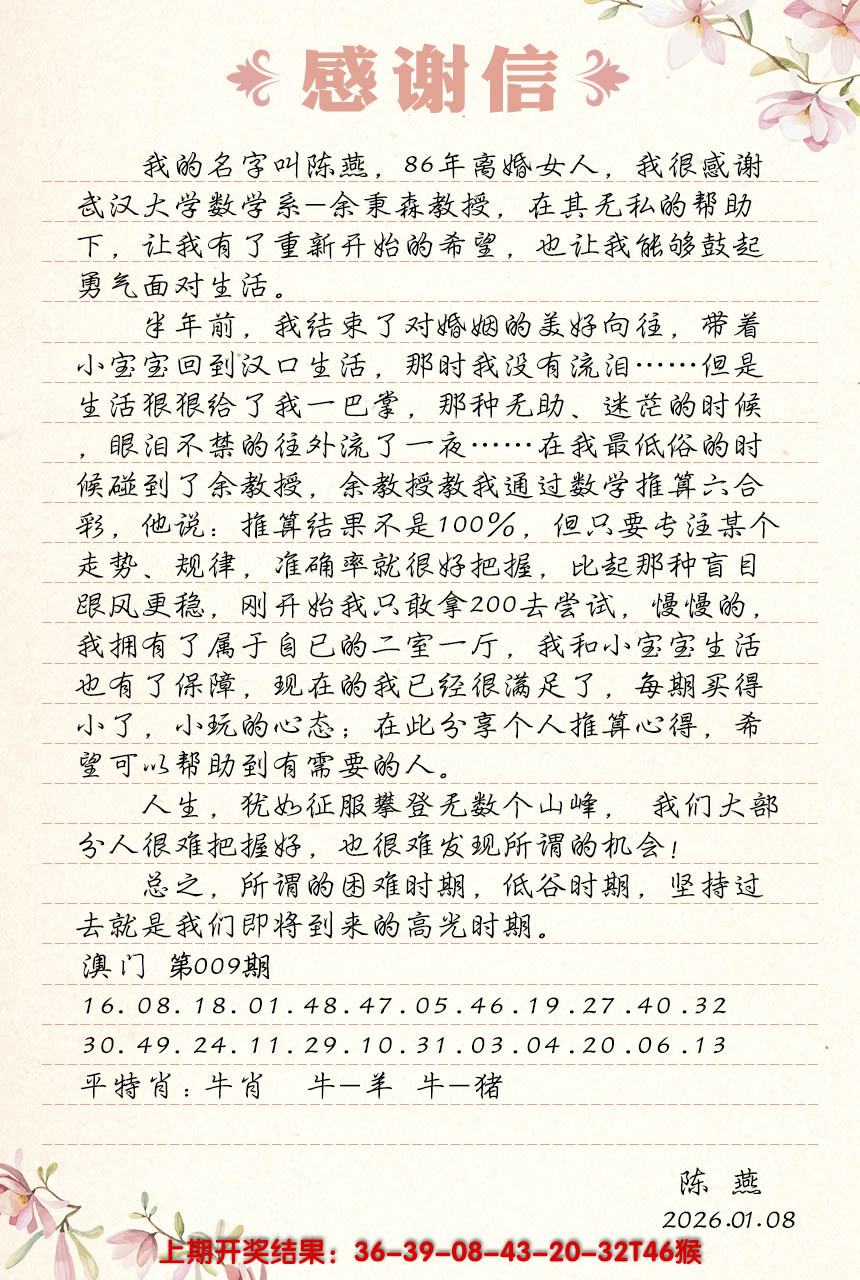 感谢信
我的名字叫陈燕，86年离婚女人，我很感谢
武汉大学数学系—余秉森教授，在其无私的帮助
下，让我有了重新开始的希望，也让我能够鼓起
勇气面对生活。
半年前，我结束了对婚姻的美好向往，带着
小宝宝回到汉口生活，那时我没有流泪……但是
生活狠狠给了我一巴掌，那种无助、迷茫的时候
，眼泪不禁的往外流了一夜……在我最低俗的时
候碰到了余教授，余教授教我通过数学推算六合
彩，他说：推算结果不是100%，但只要专注某个
走势、规律，准确率就很好把握，比起那种盲目
跟风更稳，刚开始我只敢拿200去尝试，慢慢的，
我拥有了属于自己的二室一厅，我和小宝宝生活
也有了保障，现在的我已经很满足了，每期买得
小了，小玩的心态；在此分享个人推算心得，希
望可以帮助到有需要的人。
人生，犹如征服攀登无数个山峰， 我们大部
分人很难把握好，也很难发现所谓的机会！
总之，所谓的困难时期，低谷时期，坚持过
去就是我们即将到来的高光时期。
澳门 第009期
16.08.18.01.48.47.05.46.19.27.40.32
30.49.24.11.29.10.31.03.04.20.06.13
平特肖：牛肖 牛—羊 牛—猪
陈 燕
2026.01.08
上期开奖结果：36-39-08-43-20-32T46猴